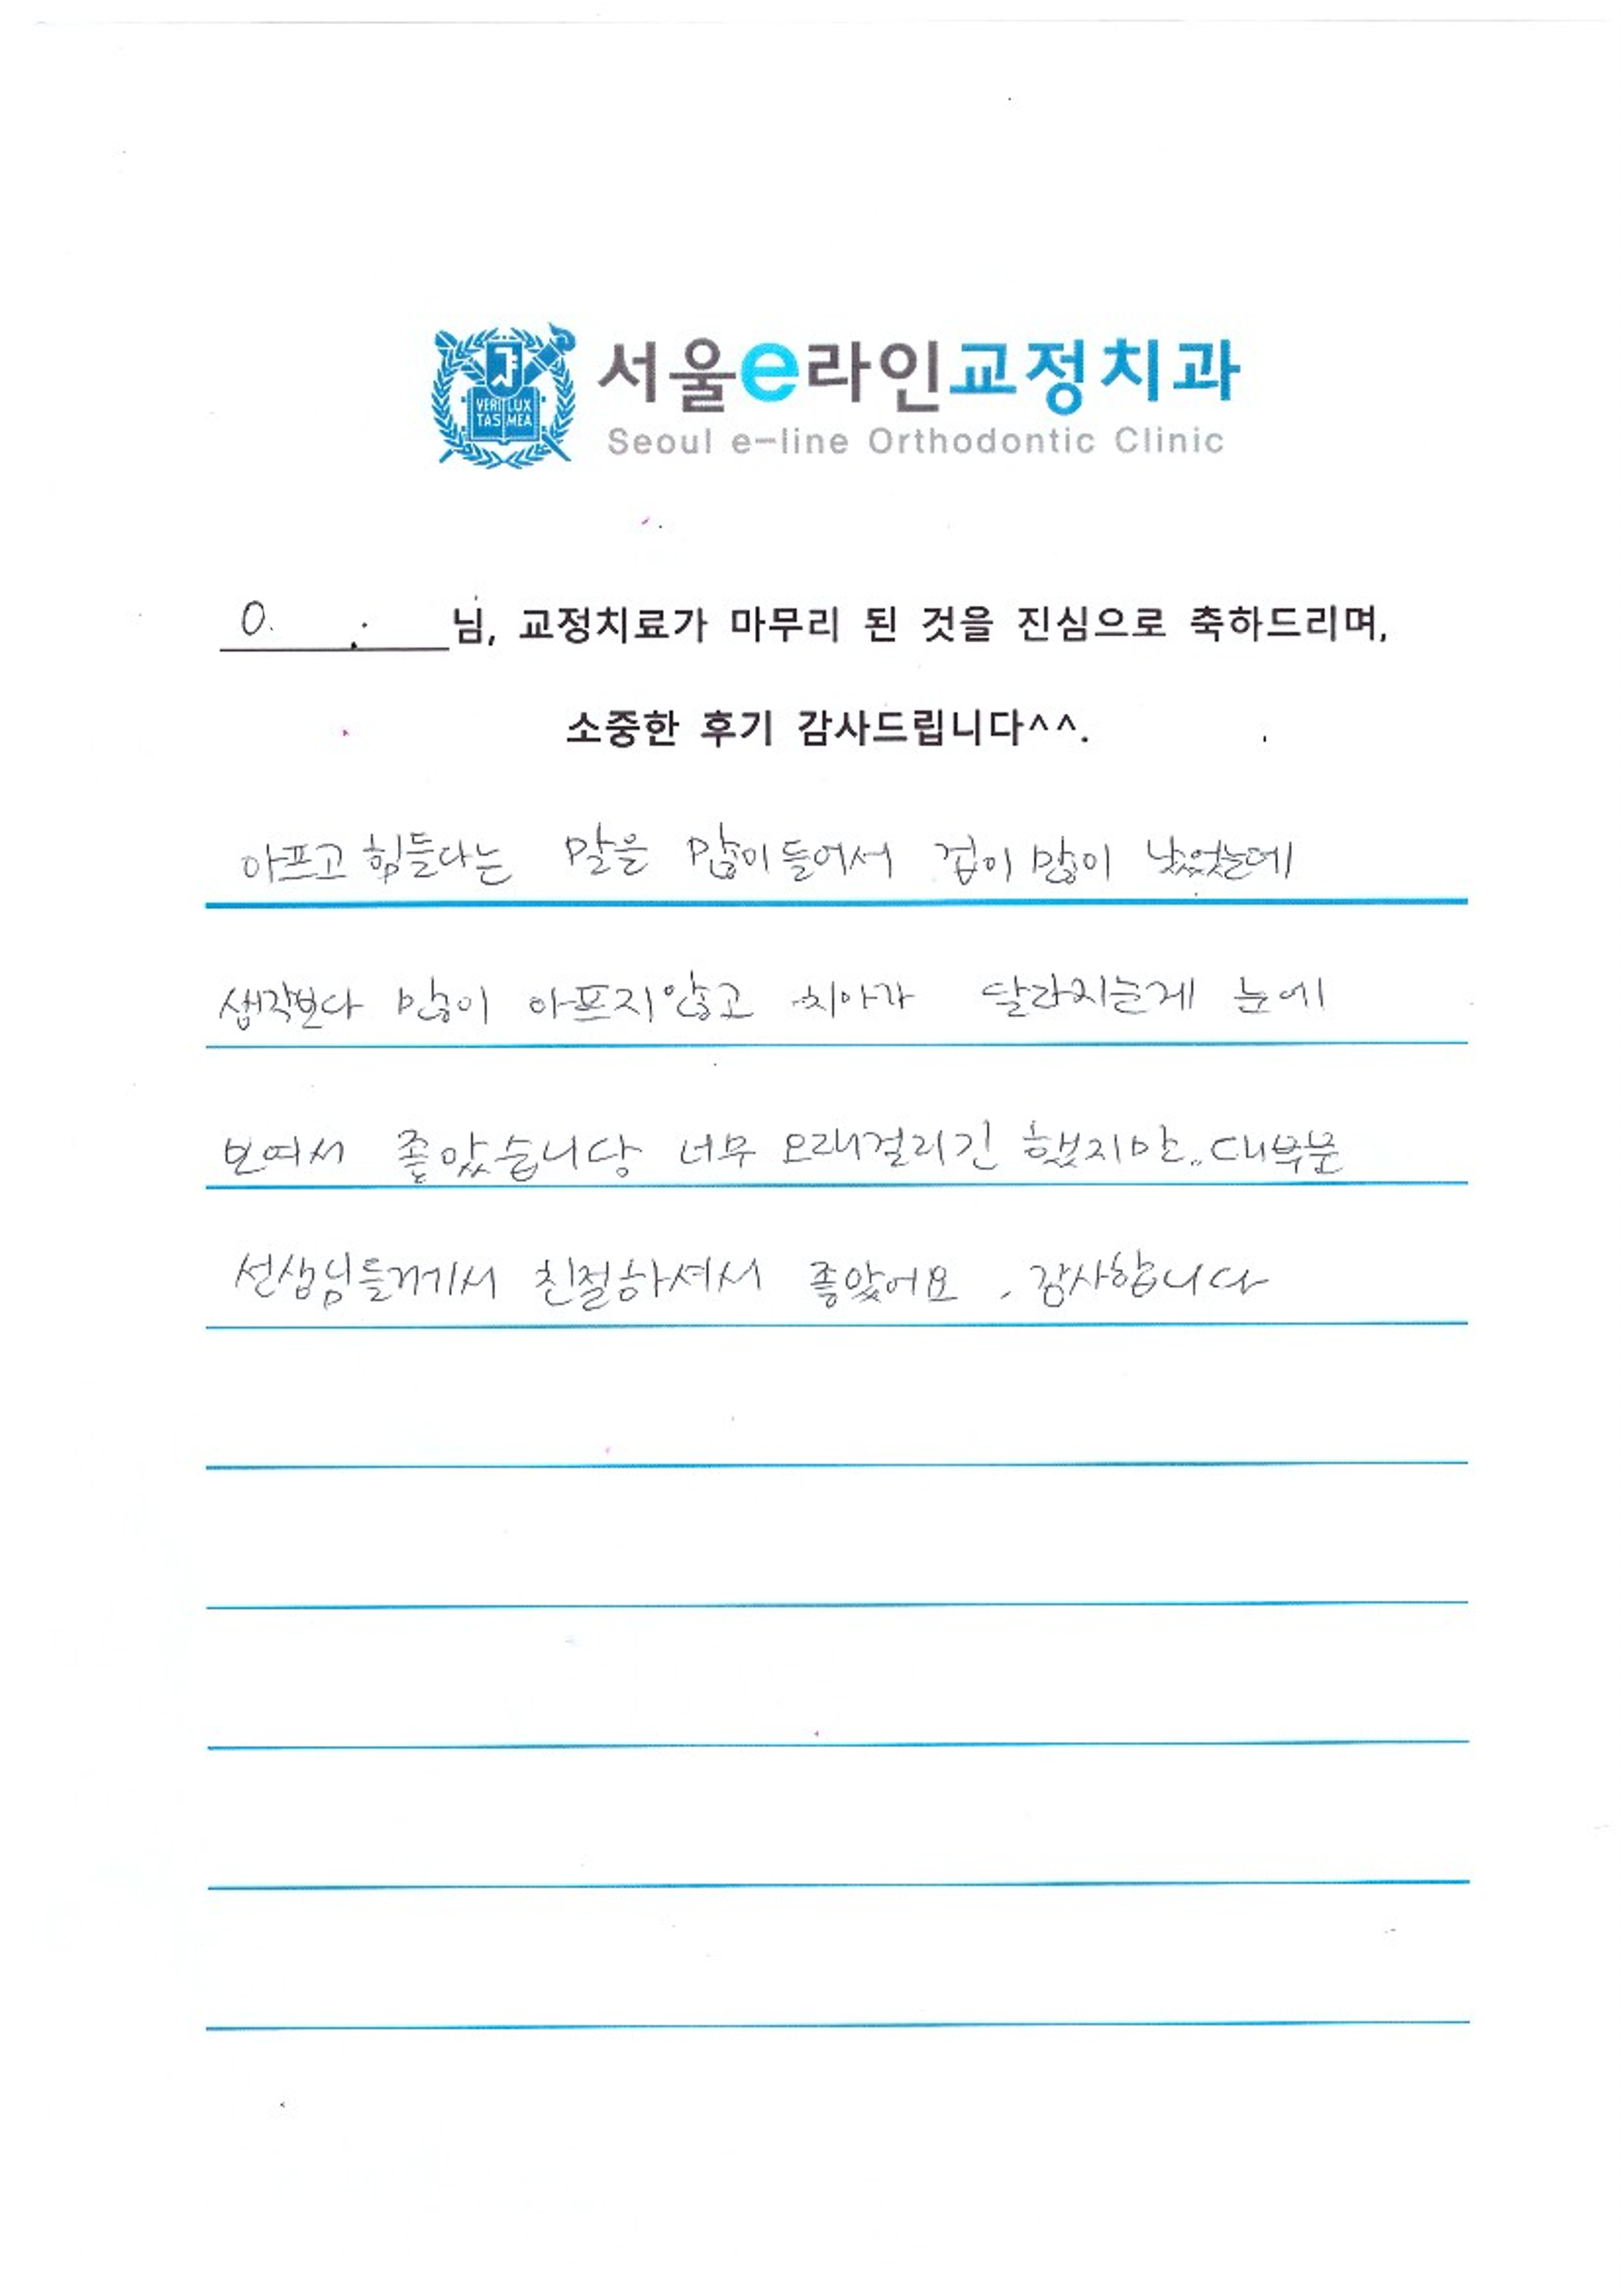 VERI LUX
TAS MEA
서울e라인교정치과
Seoul e-line Orthodontic Clinic
님, 교정치료가 마무리 된 것을 진심으로 축하드리며,
소중한 후기 감사드립니다^^.
아프고 힘들다는 말을 많이들어서 겁이 많이 났었는데
생각보다 많이 아프지않고 치아가 달라지는게 눈에
보여서 좋았습니당 너무 오래걸리긴 했지만.. 대부분
선생님들께서 친절하셔서 좋았어요. 감사합니다